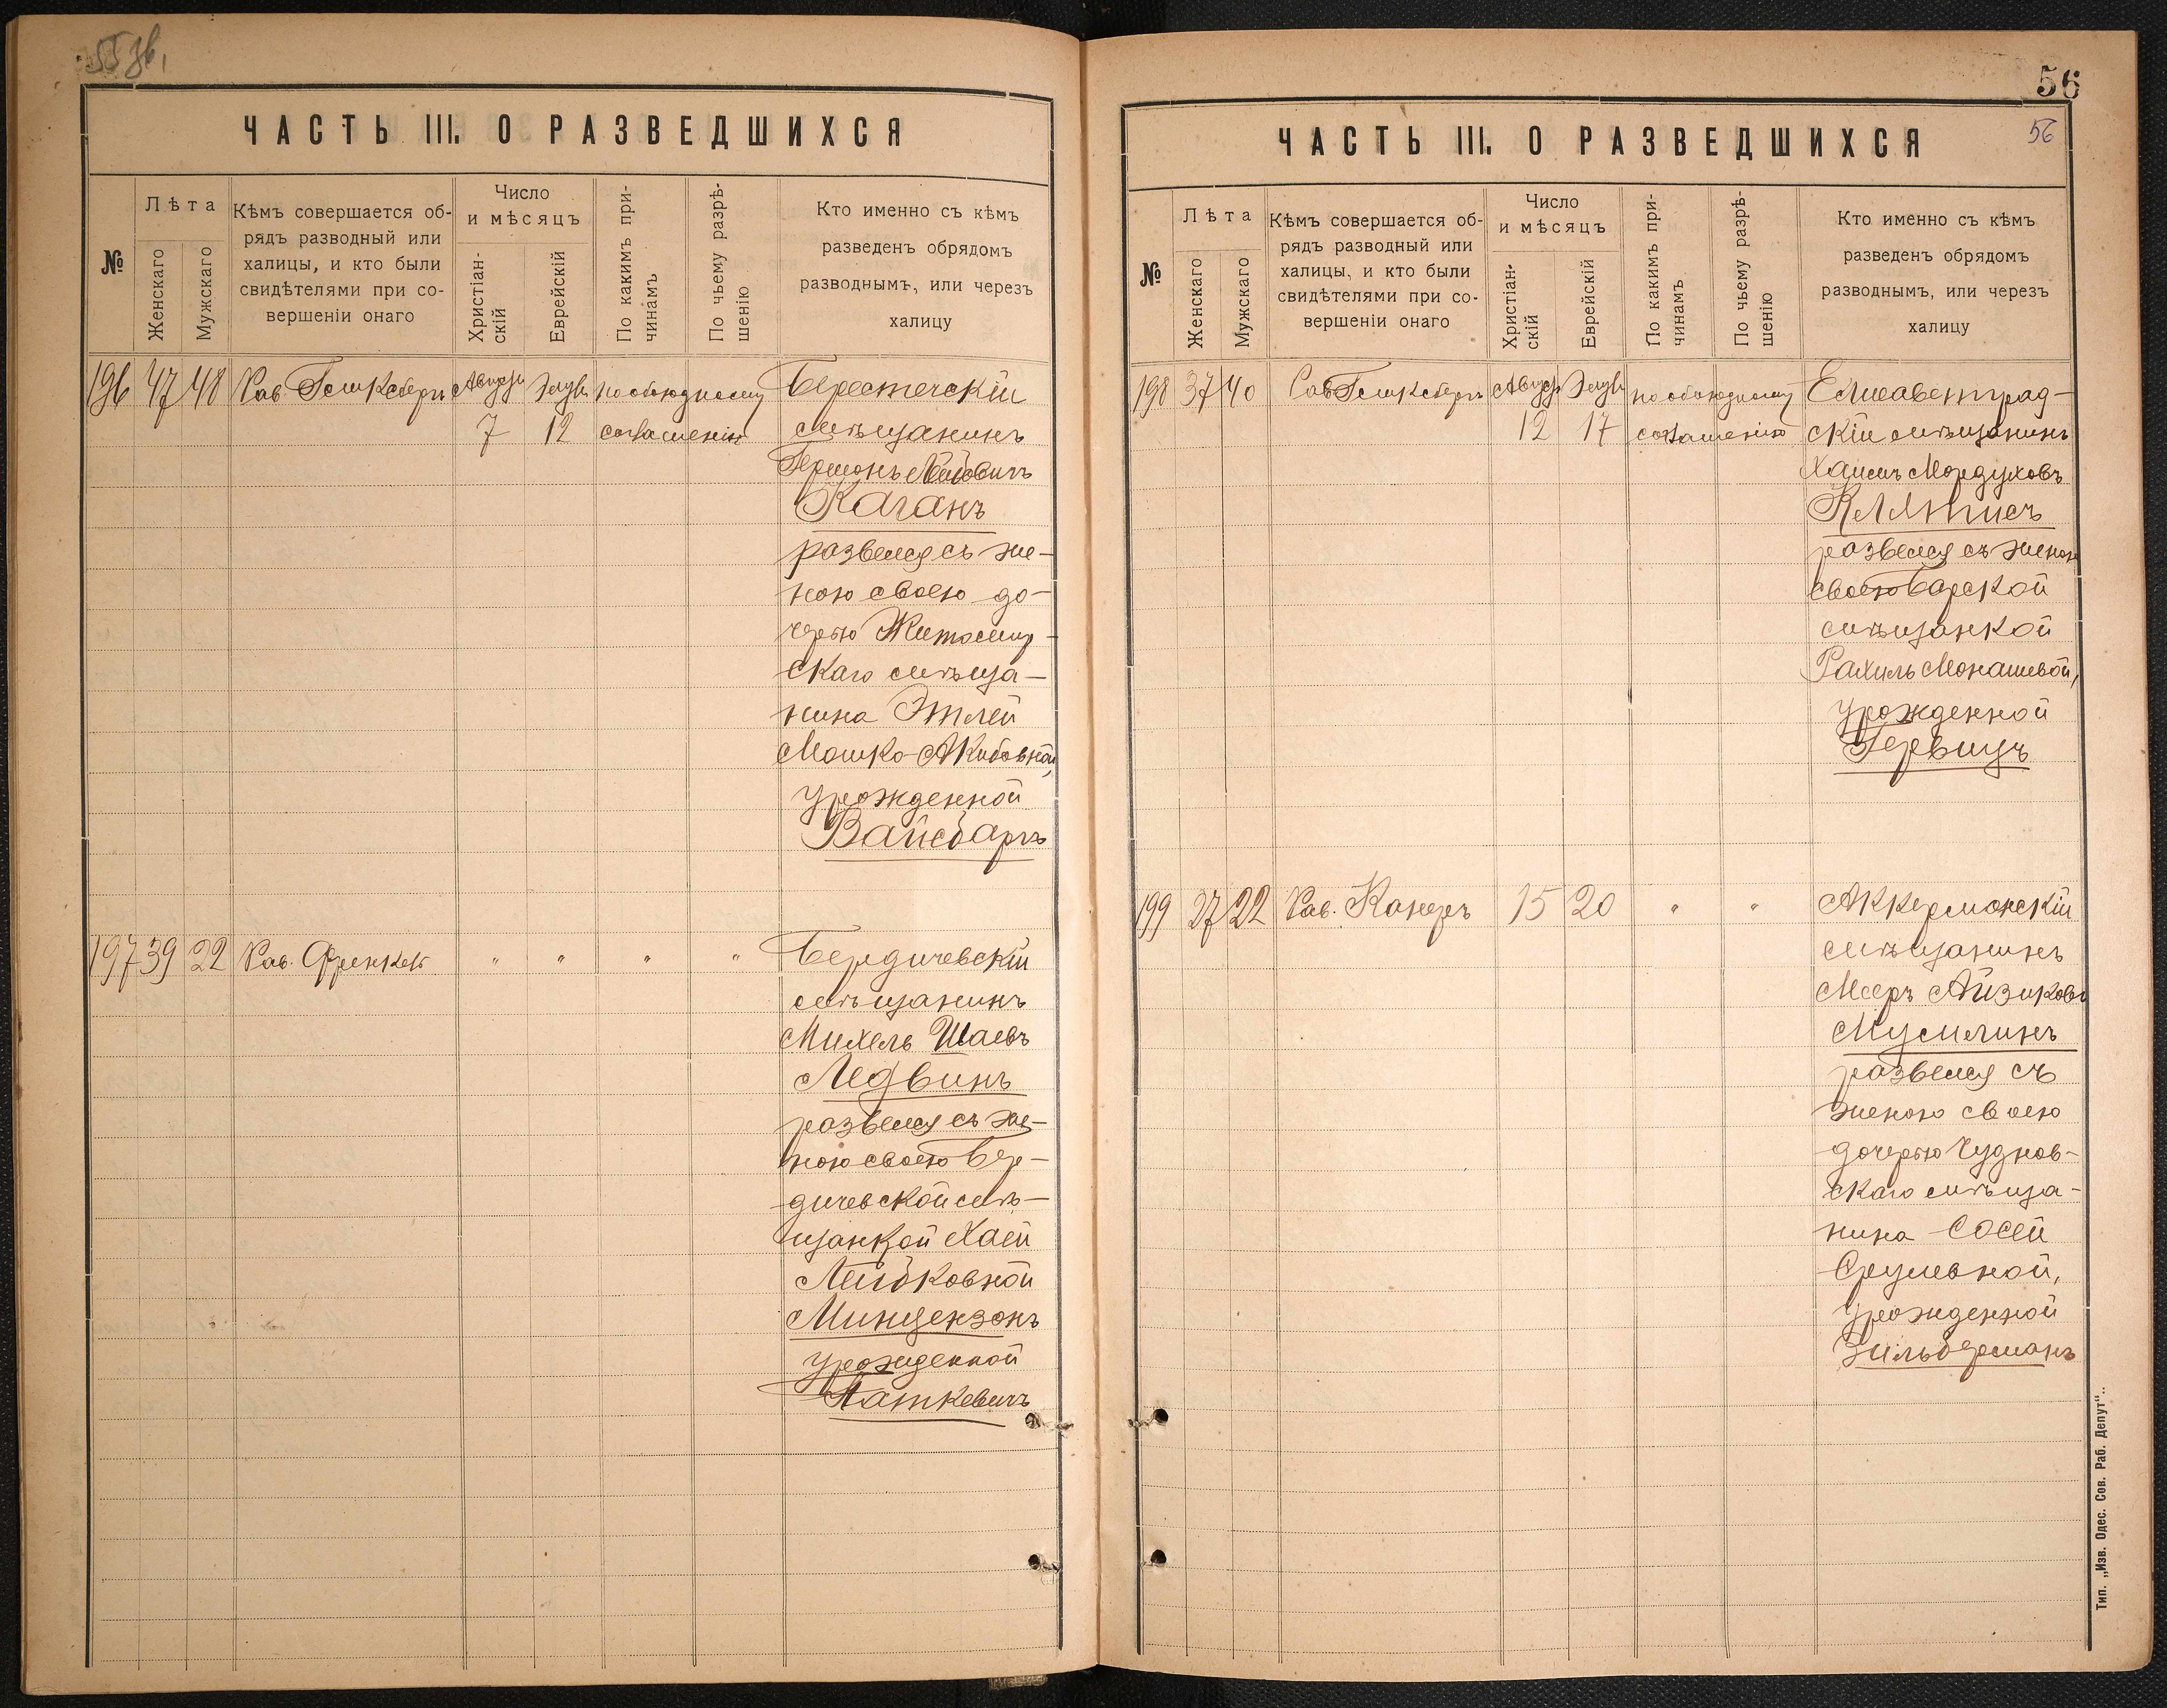 55 зв.
ЧАСТЬ III. О РАЗВЕДШИХСЯ
№
Лѣта
Женскаго
Мужскаго
Кѣмъ совершается об-
рядъ разводный или
халицы, и кто были
свидѣтелями при со-
вершеніи онаго
Число
и мѣсяцъ
Христіан-
скій
Еврейскій
По какимъ при-
чинамъ
По чьему разрѣ-
шенію
Кто именно съ кѣмъ
разведенъ обрядомъ
разводнымъ, или черезъ
халицу
196 47 48 Рав. Гликсбергъ по обоюдному Берестечскій
7 12 соглашенію мѣщанинъ
Германъ
Каганъ
развелся съ же-
ною своею до-
черью Житомир-
скаго мѣща-
нина Этлей
Мошко-Акибовной,
урожденной
Вайсбаргъ
197 39 22 Рав. Френкель " " " " Бердичевскій
мѣщанинъ
Михель Шаевъ
Ледвинъ
развелся съ же-
ною своею Бер-
дичевской мѣ-
щанкой Хаей
Лейбковной
Минцензонъ
урожденной
Паткевичъ
56
ЧАСТЬ III. О РАЗВЕДШИХСЯ
56
№
Лѣта
Женскаго
Мужскаго
Кѣмъ совершается об-
рядъ разводный или
халицы, и кто были
свидѣтелями при со-
вершеніи онаго
Число
и мѣсяцъ
Христіан-
скій
Еврейскій
По какимъ при-
чинамъ
По чьему разрѣ-
шенію
Кто именно съ кѣмъ
разведенъ обрядомъ
разводнымъ, или черезъ
халицу
198 37 40 Рав. Гликсбергъ по обоюдному Елисаветград-
12 17 соглашенію скій мѣщанинъ
Хаимъ Мордуховъ
Клятисъ
развелся съ женою
своею Барской
мѣщанкой
Рахиль Монашевой,
урожденной
Гервицъ
199 27 22 Рав. Канеръ 15 20 " " Аккерманскій
мѣщанинъ
Мееръ Айзиковъ
Муслинъ
развелся съ
женою своею
дочерью Чуднов-
скаго мѣща-
нина Сосей
Срулевной,
урожденной
Зильберманъ
Тип. „Изв. Одес. Сов. Раб. Депут“.